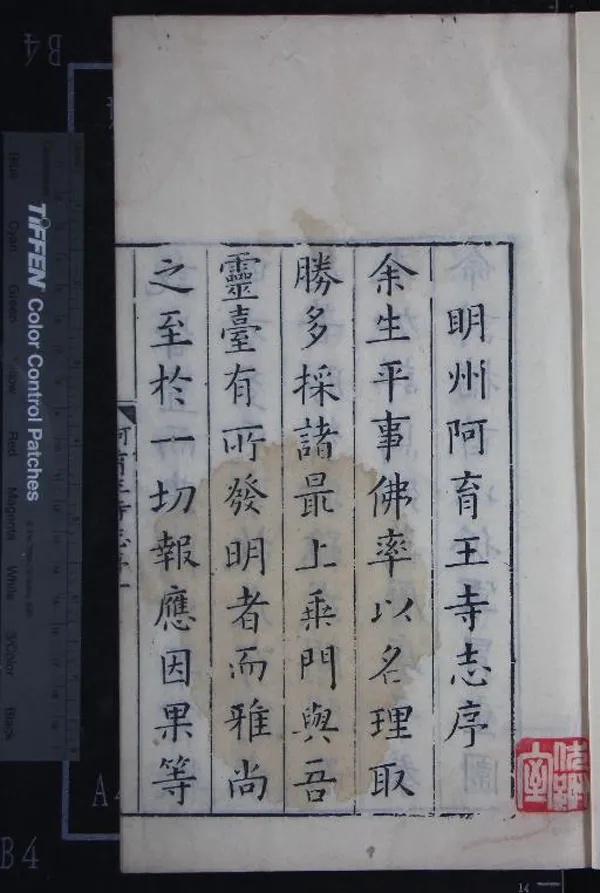 明州阿育王寺志序
余生平事佛率以名理取
勝多採諸最上乘門與吾
靈臺有所發明者而雅尚
之至於一切報應因果等
TIFFEN Color Control Patches
Blue
Cyan
Green
Yellow
Red
Magenta
White
3/Color
Black
B4
B4
A4
14